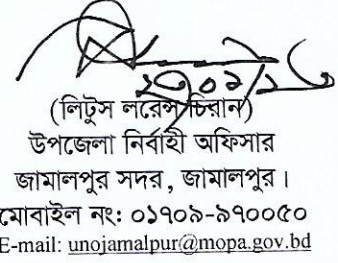 (লিটুস লরেন্স চিরান)
উপজেলা নির্বাহী অফিসার
জামালপুর সদর, জামালপুর।
মোবাইল নং: ০১৭০৯-৯৭০০৫০
E-mail: unojamalpur@mopa.gov.bd